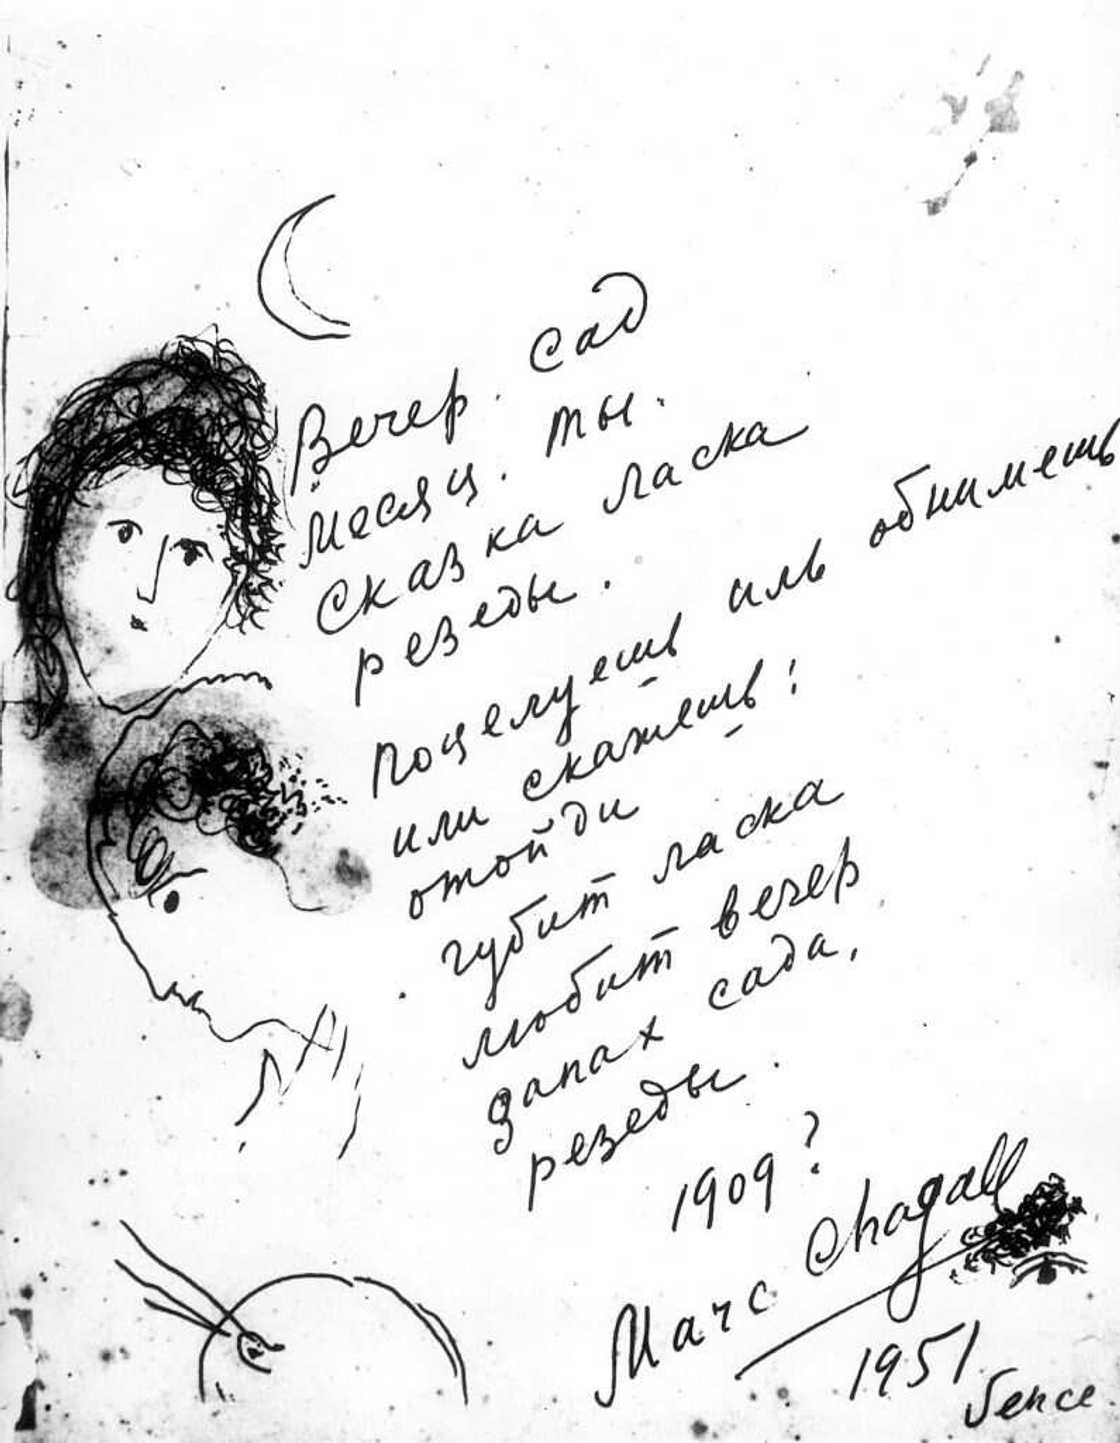 Вечер. сад
Месяц. ты.
Сказка ласка
резеды.
Поцелуешь иль обнимешь
или скажешь:
отойди
губит ласка
любит вечер
запах сада,
резеды.
1909?
Marc Chagall
1951
Vence